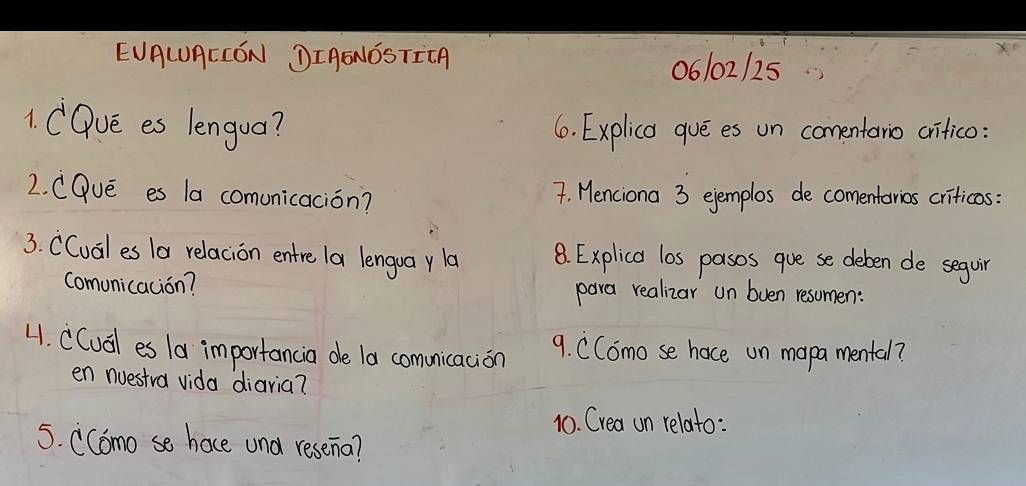 EVALUACIÓN DIAGNÓSTICA
06/02/25
1. ¿Qué es lengua?
2. ¿Qué es la comunicación?
3. ¿Cuál es la relación entre la lengua y la
comunicación?
4. ¿Cuál es la importancia de la comunicación
en nuestra vida diaria?
5. ¿Cómo se hace una reseña?
6. Explica qué es un comentario crítico:
7. Menciona 3 ejemplos de comentarios críticos:
8. Explica los pasos que se deben de seguir
para realizar un buen resumen:
9. ¿Cómo se hace un mapa mental?
10. Crea un relato: